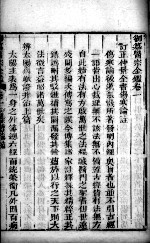 御纂醫宗金鑑卷一
訂正仲景全書傷寒論註
傷寒論後漢張機所著發明內經奧旨者也並不引古經
一語皆出心裁理無不該法無不備蓋古經皆有法無方
自此始有法有方啟萬世之法程誠醫門之聖書但世遠
殘闕多編次傳寫之誤今博集諸家註釋採其精粹正其
錯訛刪其駁雜補其闕漏發其餘蘊於以行之天下則大
法微言益昭諸萬世矣
辨太陽病脈證并治上篇
太陽主表為一身之外藩總六經而統榮衛凡外因百病